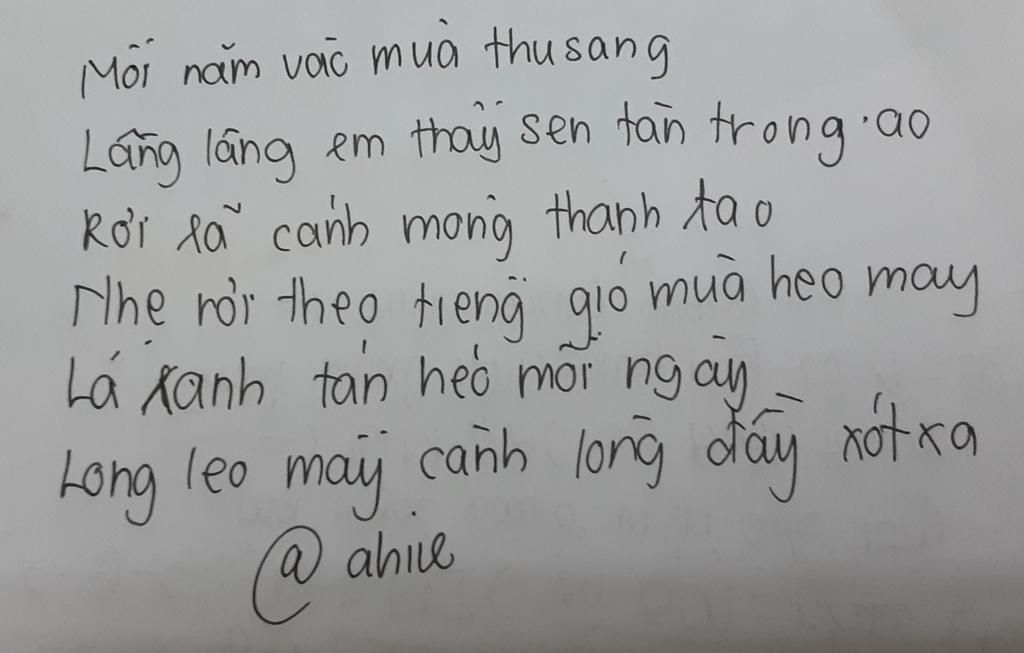 Mỗi năm vào mùa thu sang
Lẳng lặng em thấy sen tàn trong ao
Rơi xả cánh mỏng thanh tao
Nhẹ rơi theo tiếng gió mùa heo may
Lá xanh tán héo mỗi ngày
Long leo mấy cành lòng đầy xót xa
@ ahile